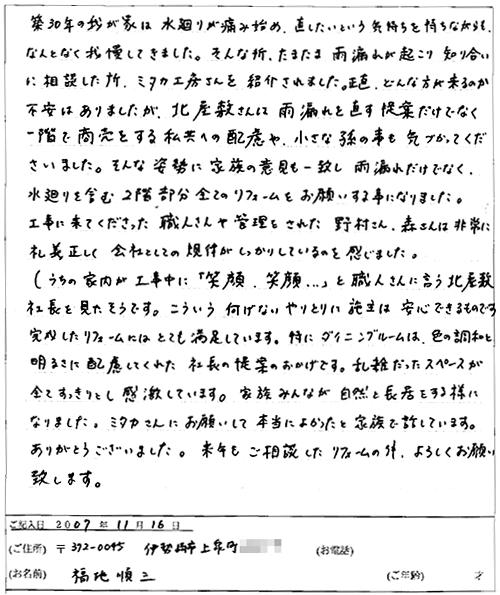 築30年の我が家は 水廻りが痛み始め、直したいという気持ちを持ちながらも、
なんとなく我慢してきました。そんな折、たまたま 雨漏れが起こり 知り合い
に相談した所、ミタカ工房さんを紹介されました。正直、どんな方が来るのか
不安はありましたが、北屋敷さんは 雨漏れを直す提案だけでなく
一階で商売をする私共への配慮や、小さな孫の事も気づかってくだ
さいました。そんな姿勢に家族の意見も一致し 雨漏れだけでなく、
水廻りを含む 2階部分全てのリフォームをお願いする事になりました。
工事に来てくださった 職人さんや管理をされた 野村さん、森さんは非常に
礼義正しく 会社としての規律がしっかりしているのを感じました。
(うちの家内が工事中に「笑顔、笑顔…」と職人さんに言う北屋敷
社長を見たそうです。こういう何げないやりとりに施主は安心できるものです
完成したリフォームにはとても満足しています。特にダイニングルームは、色の調和と
明るさに配慮してくれた 社長の提案のおかげです。乱雑だったスペースが
全てすっきりとし 感激しています。家族みんなが自然と長居をする様に
なりました。ミタカさんにお願いして本当によかったと家族で話しています。
ありがとうございました。来年もご相談したリフォームの件、よろしくお願い
致します。
ご記入日 2007年 11月 16日
(ご住所) 〒372-0045 伊勢崎市上泉町 (お電話)
(お名前) 福地 順三 (ご年齢) 才